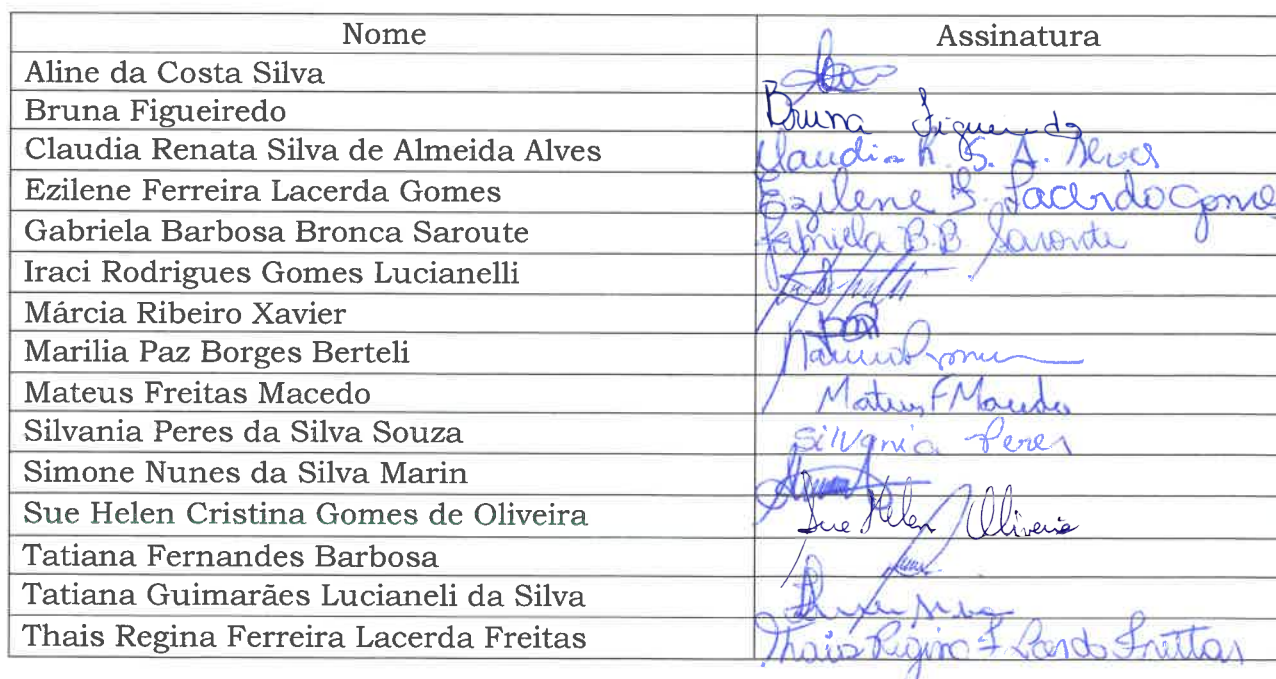 Nome Assinatura
Aline da Costa Silva
Bruna Figueiredo Bruna Figueiredo
Claudia Renata Silva de Almeida Alves Claudia R. S. A. Alves
Ezilene Ferreira Lacerda Gomes Ezilene F. Lacerda Gome
Gabriela Barbosa Bronca Saroute Gabriela B.B. Saroute
Iraci Rodrigues Gomes Lucianelli
Márcia Ribeiro Xavier
Marilia Paz Borges Berteli
Mateus Freitas Macedo Mateus F Macedo
Silvania Peres da Silva Souza Silvania Peres
Simone Nunes da Silva Marin
Sue Helen Cristina Gomes de Oliveira Sue Helen Oliveira
Tatiana Fernandes Barbosa
Tatiana Guimarães Lucianeli da Silva
Thais Regina Ferreira Lacerda Freitas Thais Regina F Freittas